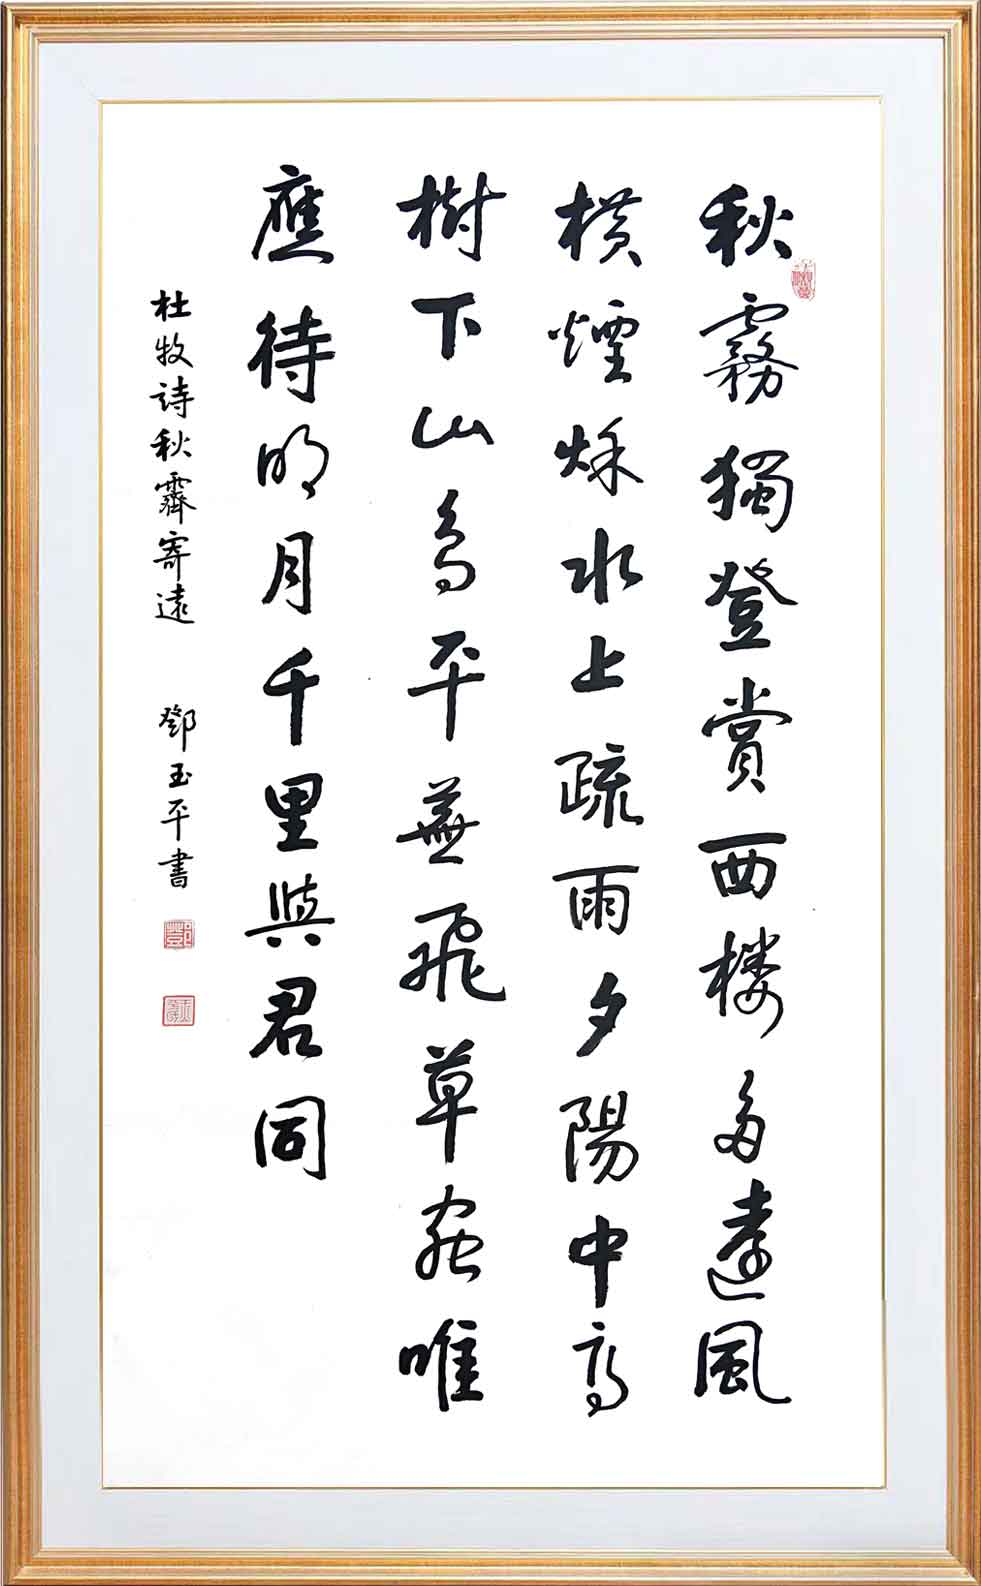 秋霧獨登賞西楼多遠風
横煙秌水上疏雨夕陽中高
樹下山鳥平蕪飛草虫唯
應待明月千里與君同
杜牧詩秋霽寄遠 鄧玉平書